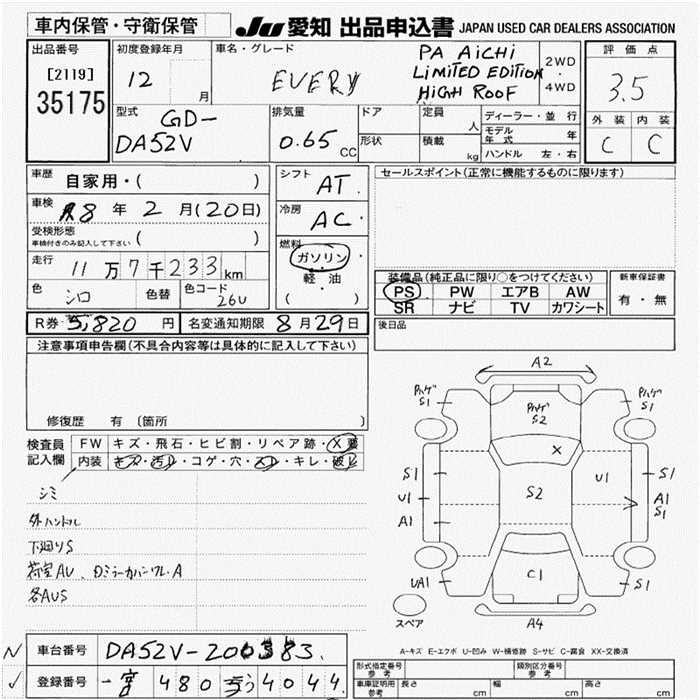 車内保管・守衛保管
JU 愛知 出品申込書 JAPAN USED CAR DEALERS ASSOCIATION
出品番号 初度登録年月 車名・グレード 評価点
[2119] 12 月 EVERY PA AiCHi 2WD 3.5
35175 LiMiTED EDiTiON ・
HiGH RooF 4WD
型式 排気量 ドア 定員 ディーラー・並行 外装 内装
GD- 人 モデル年式 年 C C
DA52V 0.65 CC 形状 積載 kg ハンドル 左・右
車歴 自家用・( ) シフト AT セールスポイント(正常に機能するものに限ります)
車検 R8年 2月(20日) 冷房 AC
受検形態
車検付きのみ記入して下さい ( ) 燃料
走行 11万7千233km ガソリン 装備品(純正品に限り○をつけてください) 新車保証書
色 シロ 色替 色コード 26U 軽・油 PS PW エアB AW 有・無
( ) SR ナビ TV カワシート
R券 5,820円 名変通知期限 8月29日 後日品
注意事項申告欄(不具合内容等は具体的に記入して下さい)
修復歴 有 〔箇所 〕
検査員 FW キズ・飛石・ヒビ割・リペア跡・X要
記入欄 内装 キズ・汚レ・コゲ・穴・スレ・キレ・破レ
シミ
外ハンドル
下廻りS
荷室AU、Dミラーカバーワレ・A
各AUS
A2
ハゲ S1
ハゲ S2
ハゲ S1
X
S1 U1 S1
U1 S2 A1
A1 S1
UA1 C1 S1
スペア A4
A-キズ E-エクボ U-凹み W-補修跡 S-サビ C-腐食 XX-交換済
N 車台番号 DA52V-200383.
✓ 登録番号 一宮 480 う 4044
形式指定番号 参考 類別区分番号 参考
車庫証明用 参考 長さ cm 幅 cm 高さ cm